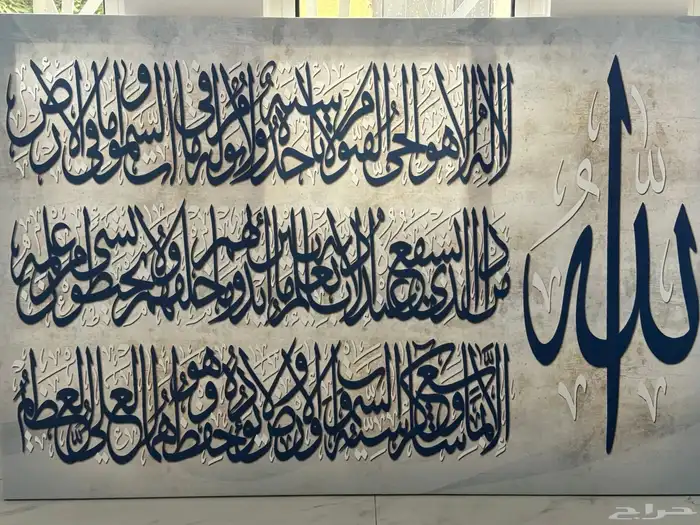 الله
لا اله الا هو الحي القيوم لا تأخذه سنة ولا نوم له ما في السموات وما في الأرض
من ذا الذي يشفع عنده الا بإذنه يعلم ما بين أيديهم وما خلفهم ولا يحيطون بشيء من علمه
إلا بما شاء وسع كرسيه السموات والأرض ولا يؤده حفظهما وهو العلي العظيم
حراج